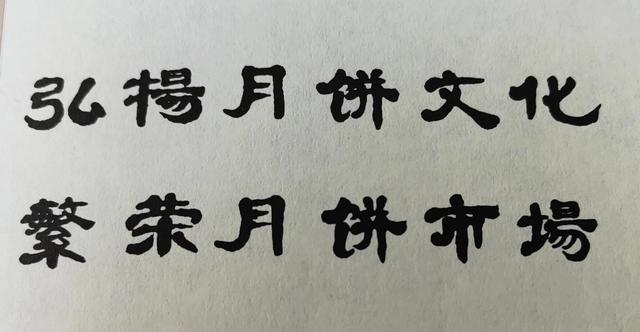 弘揚月饼文化
繁荣月饼市場